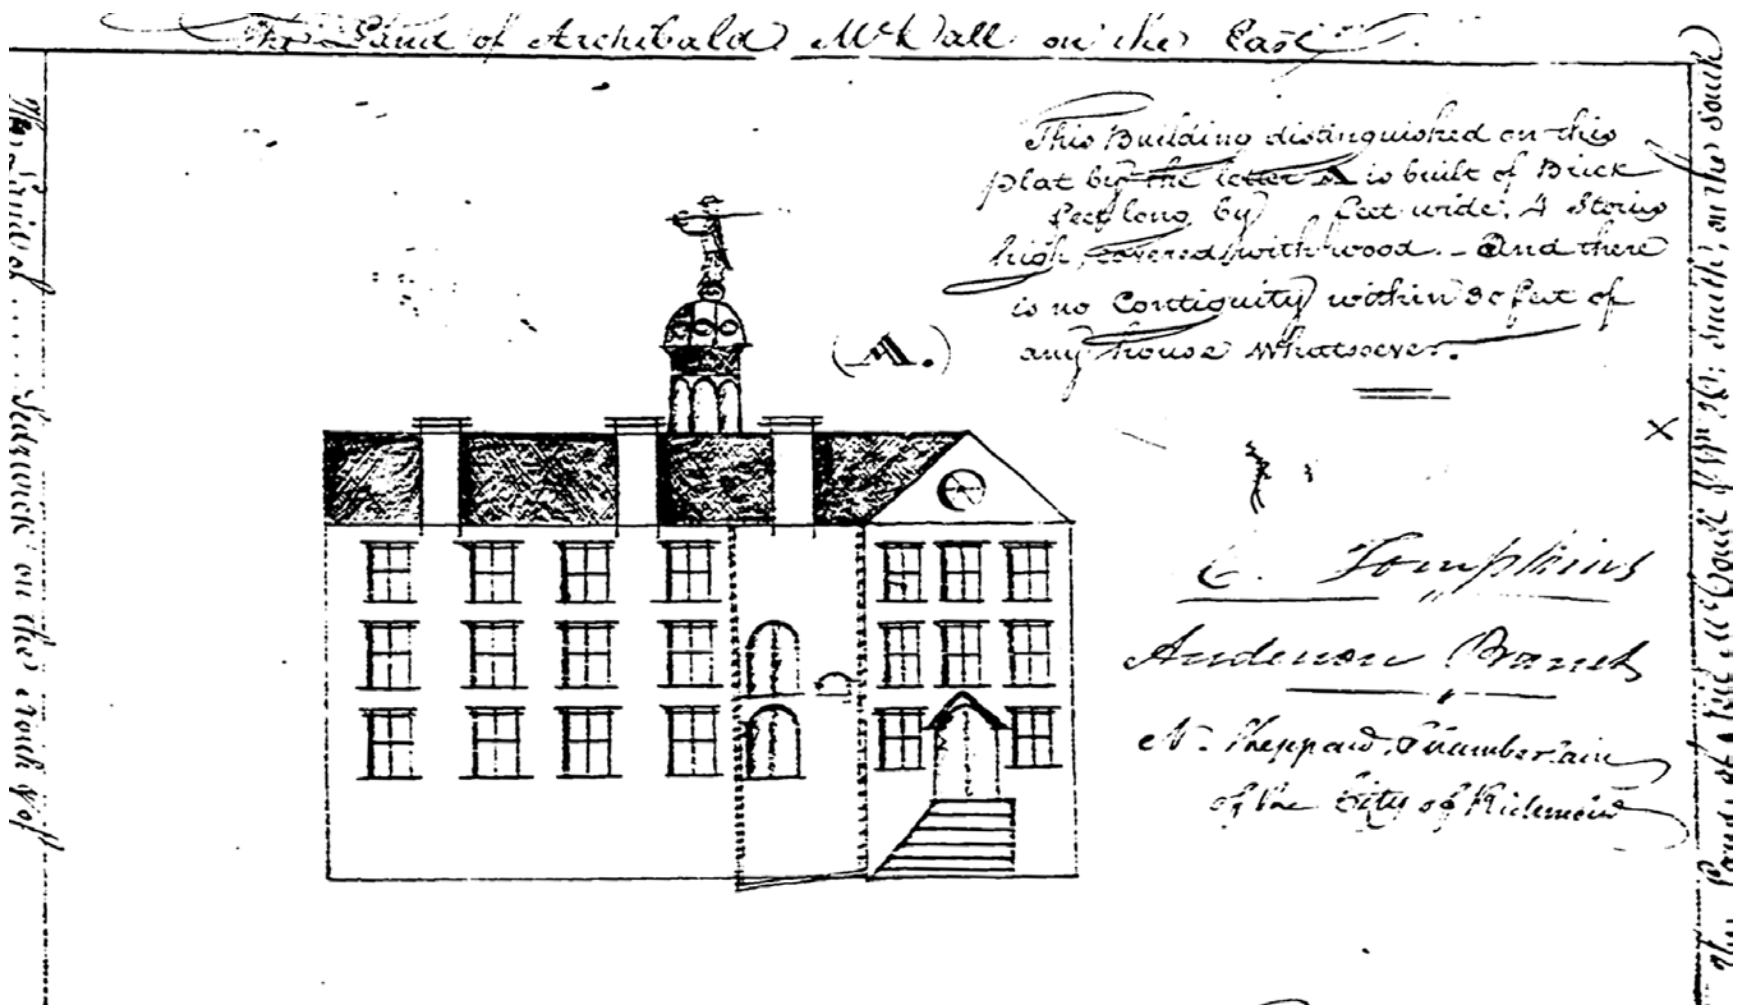 The Land of Archibald McCall on the East
This Building distinguished on this
plat by the letter A is built of Brick
feet long by feet wide, 4 Stories
high, covered with wood. - And there
is no Contiguity within 30 feet of
any house whatsoever.
(A.)
X
C. Tompkins
Anderson Barret
N. Sheppard, Chamberlain
of the City of Richmond
on the north of
on the south